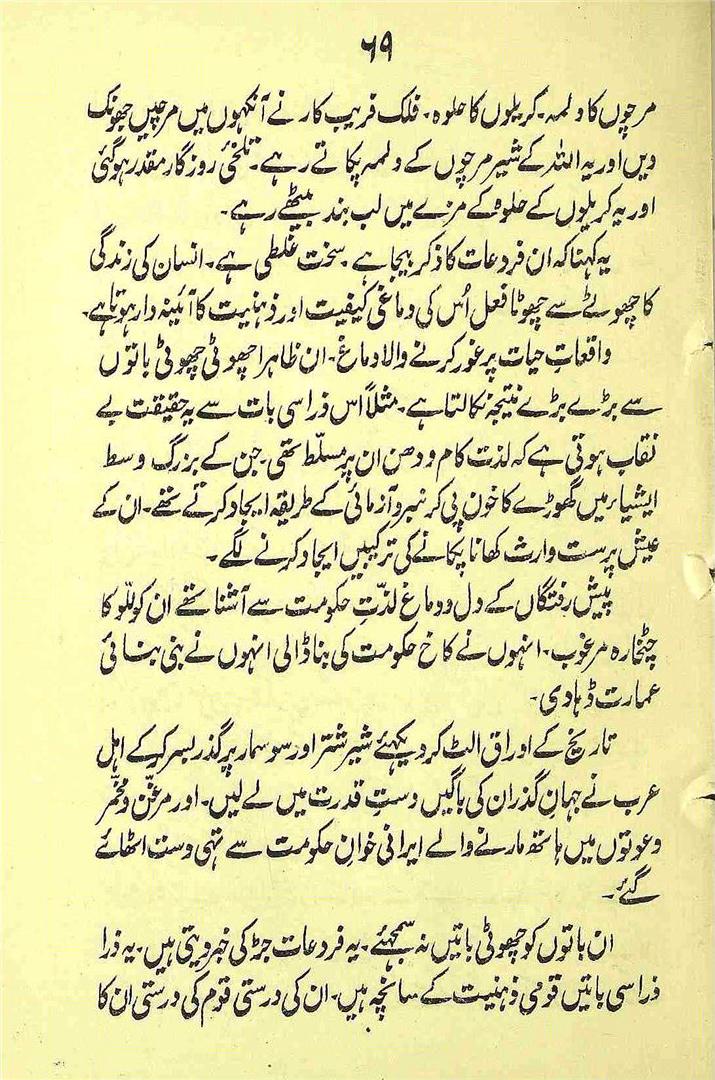 ۶۹
مرچوں کا دلمہ۔ کریلوں کا حلوہ۔ فلک فریب کار نے آنکھوں میں مرچیں جھونک
دیں اور یہ اللہ کے شیر مرچوں کے دلمہ پکاتے رہے۔ تلخئ روزگار مقدر ہو گئی
اور یہ کریلوں کے حلوہ کے مزے میں لب بند بیٹھے رہے۔
یہ کہنا کہ ان فردعات کا ذکر بیجا ہے۔ سخت غلطی ہے۔ انسان کی زندگی
کا چھوٹے سے چھوٹا فعل اُس کی دماغی کیفیت اور ذہنیت کا آئینہ دار ہوتا ہے۔
واقعاتِ حیات پر غور کرنے والا دماغ۔ ان ظاہرا چھوٹی چھوٹی باتوں
سے بڑے بڑے نتیجہ نکالتا ہے۔ مثلاً اس ذرا سی بات سے یہ حقیقت بے
نقاب ہوتی ہے کہ لذت کام و دھن ان پر مسلّط تھی۔ جن کے بزرگ وسط
ایشیاء میں گھوڑے کا خون پی کر نبرد آزمائی کے طریقہ ایجاد کرتے تھے۔ ان کے
عیش پرست وارث کھانا پکانے کی ترکیبیں ایجاد کرنے لگے۔
پیش رفتگاں کے دل و دماغ لذّتِ حکومت سے آشنا تھے ان کو للّو کا
چٹخارہ مرغوب۔ انہوں نے کاخ حکومت کی بنا ڈالی انہوں نے بنی بنائی
عمارت ڈہا دی۔
تاریخ کے اوراق الٹ کر دیکھئے شیر شتر اور سوسمار پر گذر بسر کر کے اہل
عرب نے جہانِ گذران کی باگیں دستِ قدرت میں لے لیں۔ اور مرغّن و مخمّر
دعوتوں میں ہاتھ مارنے والے ایرانی خوانِ حکومت سے تہی دست اٹھائے
گئے۔
ان باتوں کو چھوٹی باتیں نہ سمجھئے۔ یہ فردعات جڑ کی خبر دیتی ہیں۔ یہ ذرا
ذرا سی باتیں قومی ذہنیت کے سانچہ ہیں۔ ان کی درستی قوم کی درستی ان کا